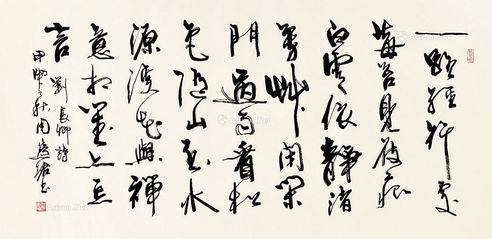 一路經行處
莓苔見履痕
白雲依靜渚
芳艸閉閑
門過雨看松
色隨山至水
源溪花與禪
意相對亦忘
言 劉長卿詩
甲 之秋周